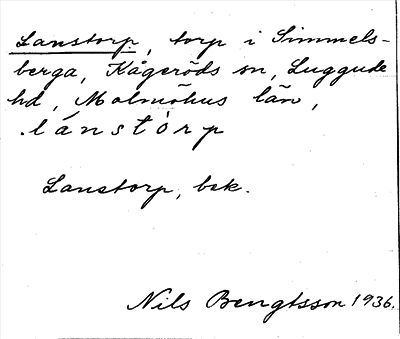 Lanstorp, torp i Simmels-
berga, Kågeröds sn, Luggude
hd, Malmöhus län,
.lánstòrp
Lanstorp, bsk.
Nils Bengtsson 1936.